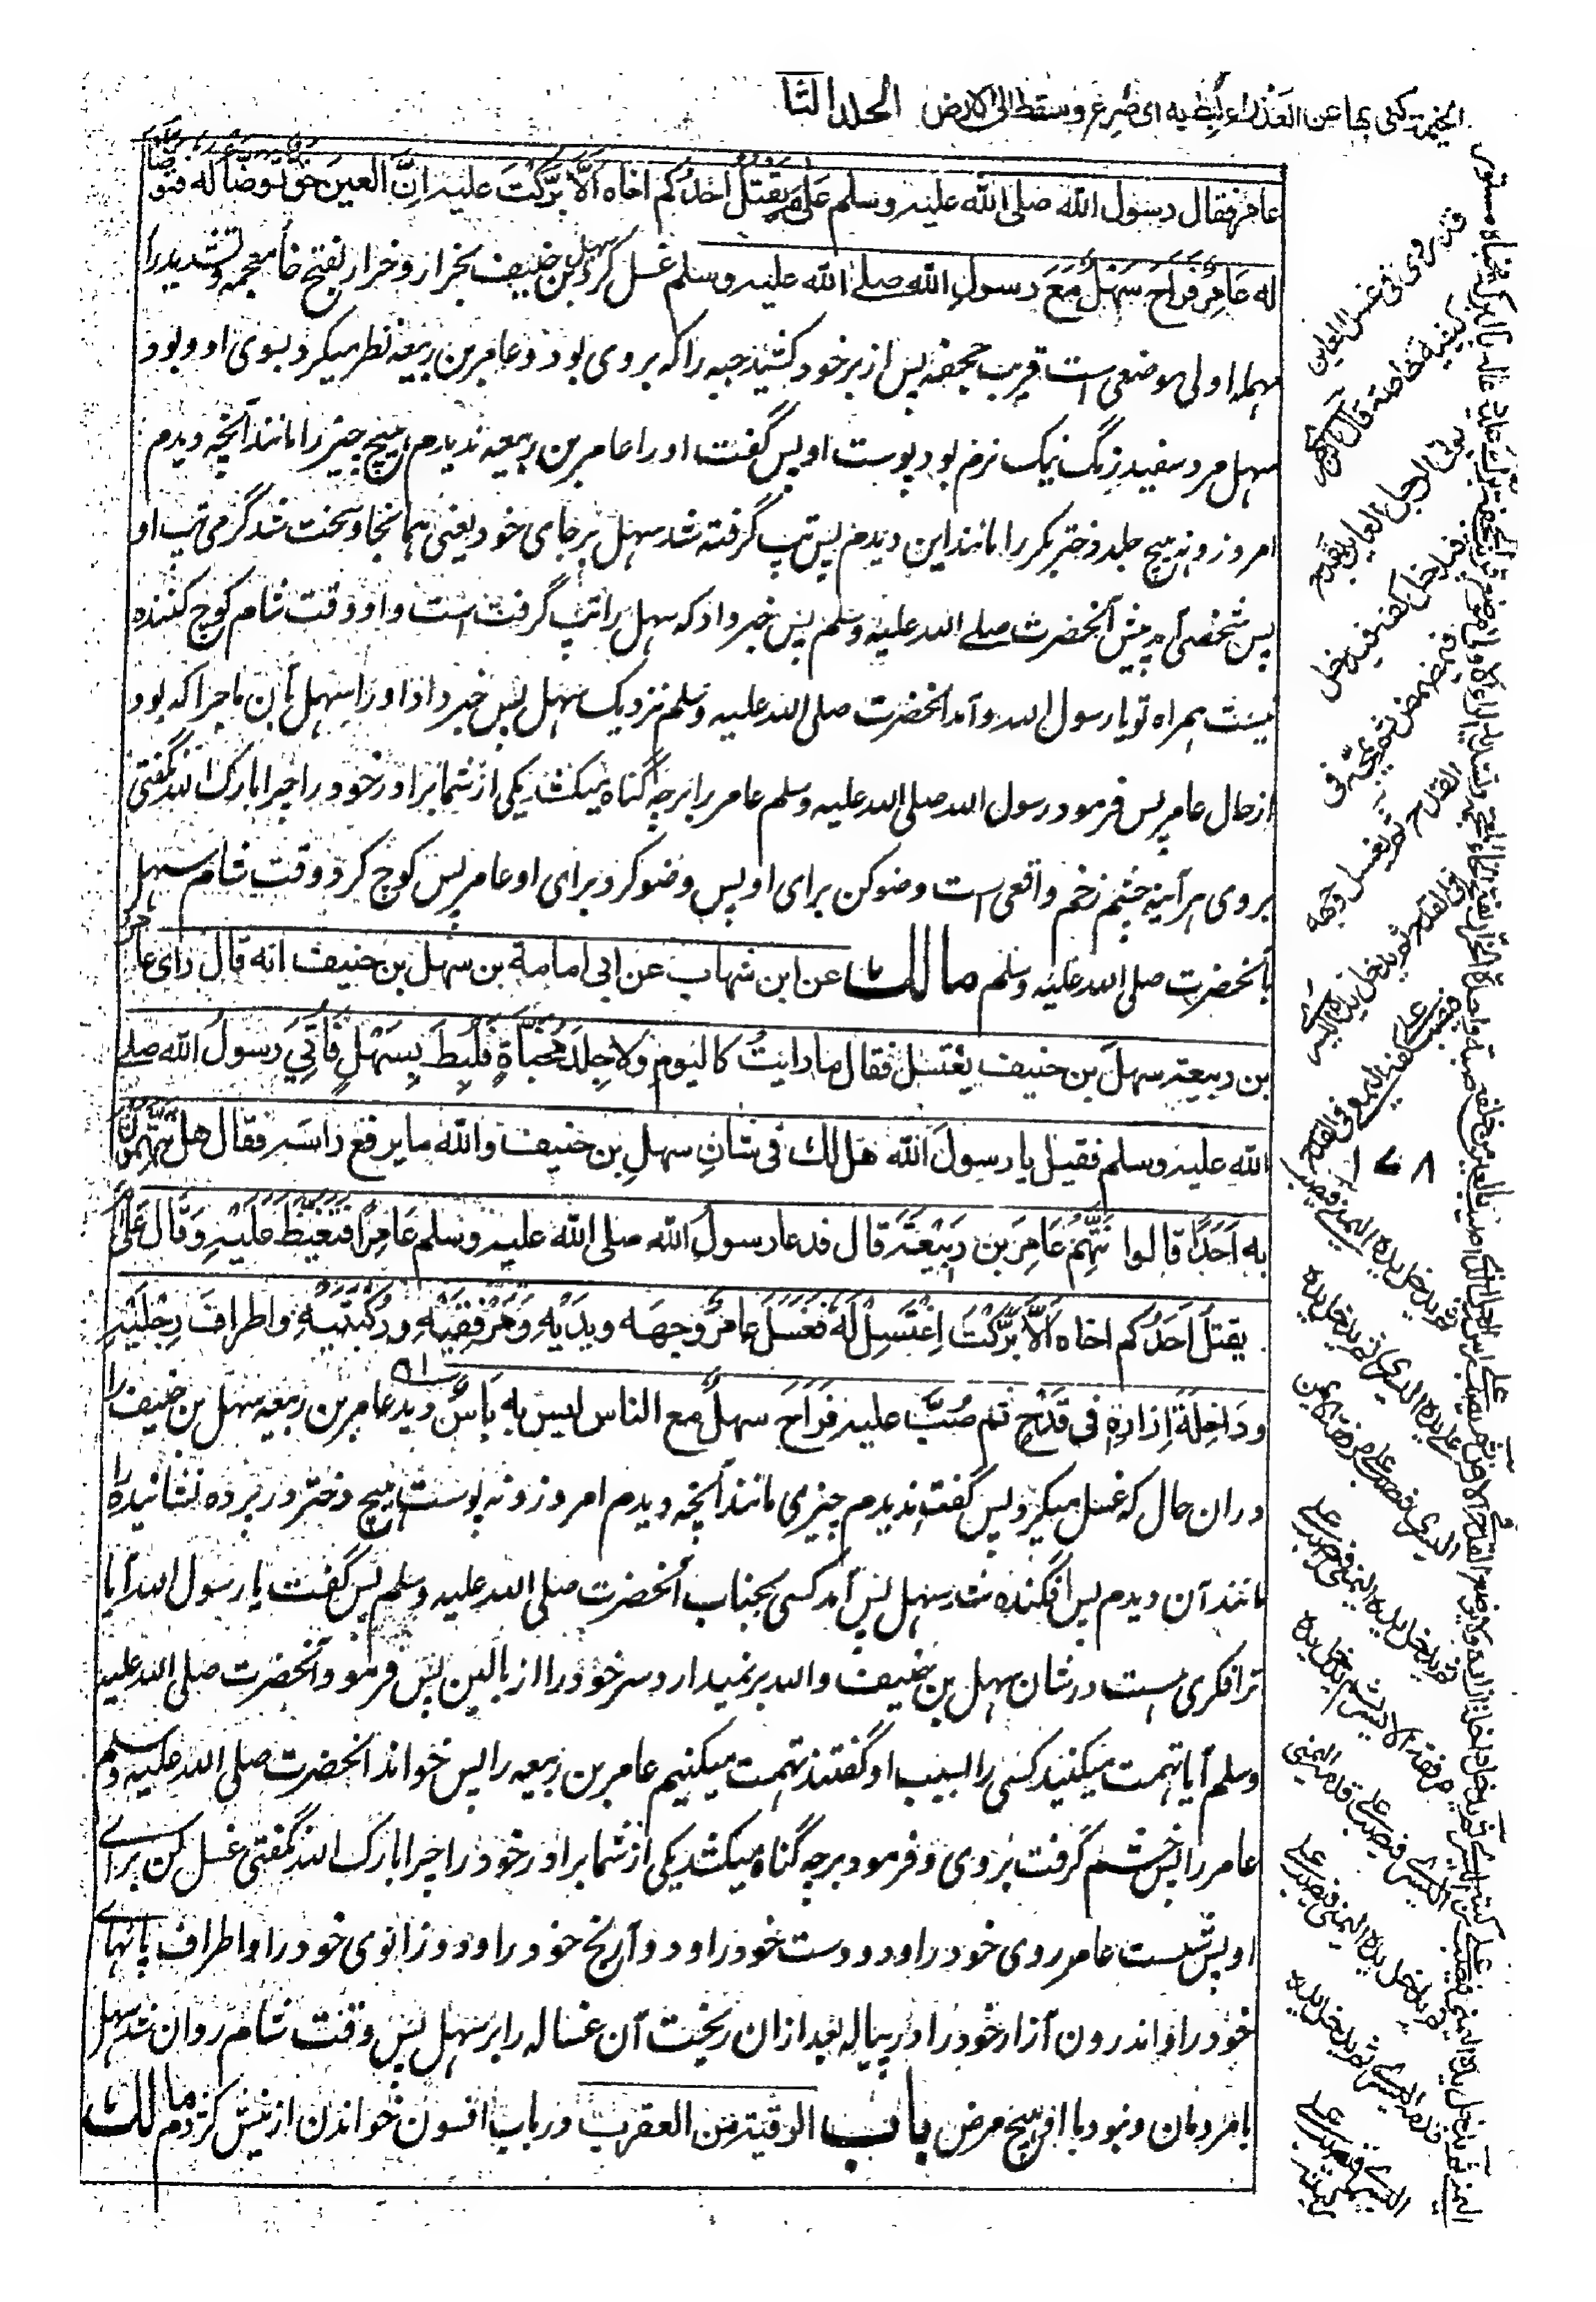 الخیمة کنی بها عن العذراء و لبط به ای صرع و سقط الی الارض الجلد الثا
عامر فقال رسول الله صلی الله علیه وسلم عَلٰی مَ یَقتُلُ اَحَدُکم اخاه اَلَّا بَرَّکْتَ علیه اِنَّ العینَ حق توضّأ له فتوضّأ
له عَامِرٌ فرَاحَ سَهْلٌ مَعَ رسولِ الله صلے الله علیه وسلم غسل کرد سهل بن حنیف بخرار و خرار بفتح خأ معجمه و تشدید را
مهمله اولی موضعی است قریب جحفه پس از بر خود کشید جبه را که بر وی بود و عامر بن ربیعه نظر میکرد بسوی او و بود
سهل مرد سفید رنگ نیک نرم بود پوست او پس گفت او را عامر بن ربیعه ندیدم هیچ چیز را مانند آنچه دیدم
امروز و نه هیچ جلد دختر بکر را مانند این دیدم پس تپ گرفته شد سهل بر جای خود یعنی همانجا و سخت شد گرمی تپ او
پس شخصی آمد پیش آنحضرت صلے الله علیه وسلم پس خبر داد که سهل را تپ گرفت است و او وقت شام کوچ کننده
نیست همراه تو یا رسول الله و آمد آنحضرت صلی الله علیه وسلم نزدیک سهل پس خبر داد او را سهل بآن ماجرا که بود
از حال عامر پس فرمود رسول الله صلی الله علیه وسلم عامر را بر چه گناه میکشد یکی از شما برادر خود را چرا بارک الله نگفتی
بر وی هر آینه چشم زخم واقعی است وضو کن برای او پس وضو کرد برای او عامر پس کوچ کرد وقت شام سهل
بآنحضرت صلی الله علیه وسلم مالك عن ابن شهاب عن ابی امامة بن سهل بن حنیف انه قال رأی عامر
بن ربیعة سهلَ بن حنیف یغتسل فقال ما رایتُ کالیوم ولا جِلدَ مُخَبَّأةٍ فلُبِطَ بِسَهْلٍ فأُتِیَ رسولُ الله صلے
الله علیه وسلم فقیل یا رسولَ الله هل لك فی شانِ سهلِ بن حنیف والله ما یرفع راسَه فقال هل تتّهمونَ
به اَحَدًا قالوا نَتَّهِمُ عَامِرَ بن رَبِیْعَةَ قال فدعا رسولُ الله صلی الله علیه وسلم عَامِرًا فتغیَّظَ عَلَیْهِ وَقَال عَلٰی مَ
یقتلَ اَحَدُکم اخاه اَلَّا بَرَّکْتَ اِغْتَسِلْ لَهٗ فَغَسَلَ عَامِرٌ وجهَه ویدَیْهِ وَمَرْفِقَیْهِ ورُکْبَتَیْهِ واطرافَ رِجْلَیْهِ
ودَاخِلَةَ اِزارِهٖ فی قَدَحٍ ثم صُبَّ علیه فرَاحَ سهلٌ مع الناس لیس به بَاسٌ دید عامر بن ربیعه سهل بن حنیف را
در ان حال که غسل میکرد پس گفت ندیدم چیزی مانند آنچه دیدم امروز و نه پوست هیچ دختر در پرده نشانیده را
مانند آن دیدم پس افگنده شد سهل پس آمد کسی بجناب آنحضرت صلی الله علیه وسلم پس گفت یا رسول الله آیا
ترا فکری هست در شان سهل بن حنیف والله بر نمیدارد سر خود را از بالین پس فرمود آنحضرت صلی الله علیه
وسلم آیا تهمت میکنید کسی را بسبب او گفتند تهمت میکنیم عامر بن ربیعه را پس خواند آنحضرت صلی الله علیه وسلم
عامر را پس خشم گرفت بر وی و فرمود بر چه گناه میکشد یکی از شما برادر خود را چرا بارک الله نگفتی غسل کن برائے
او پس شست عامر روی خود را و دو دست خود را و دو آرنج خود را و دو زانوی خود را و اطراف پانهای
خود را و اندرون آزار خود را در پیاله بعد ازان ریخت آن غساله را بر سهل پس وقت شام روان شد سهل
با مردمان و نبود با او هیچ مرض باب الرقیة من العقرب در باب افسون خواندن از نیش کژدم مالك
قد روی فی غسل العاین
کیفیة خاصة قال
یوتی الرجل العاین بقدح
فیدخل کفه فیه
فیتمضمض ثم یمجه فی
القدح ثم یغسل وجهه
فی القدح ثم یدخل یده الیسری
فیصب علی کفه الیمنی فی القدح
۱۷۸
ثم یدخل یده الیمنی فیصب
علی یده الیسری ثم یدخل یده
الیسری فیصب علی مرفقه الایمن
ثم یدخل یده الیمنی فیصب علی
مرفقه الایسر ثم یدخل یده
الیسری فیصب علی قدمه الیمنی
ثم یدخل یده الیمنی فیصب علی
قدمه الیسری ثم یدخل یده
الیسری فیصب علی